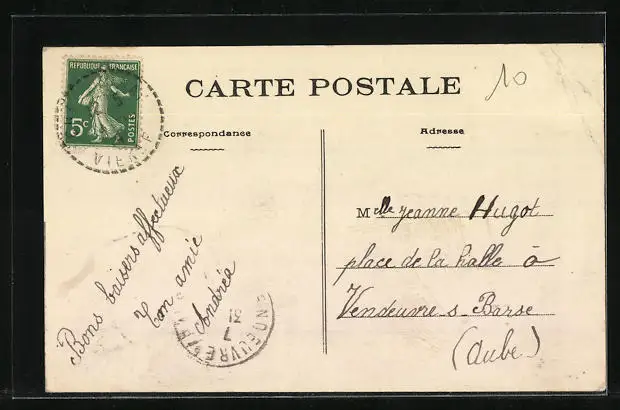 REPUBLIQUE FRANÇAISE
5c
POSTES
VIENNE
CARTE POSTALE
10
Correspondance
Adresse
Bons baisers affectueux
Ton amie
Andréa
Melle Jeanne Hugot
place de la halle à
Vendeuvre s Barse
(Aube)